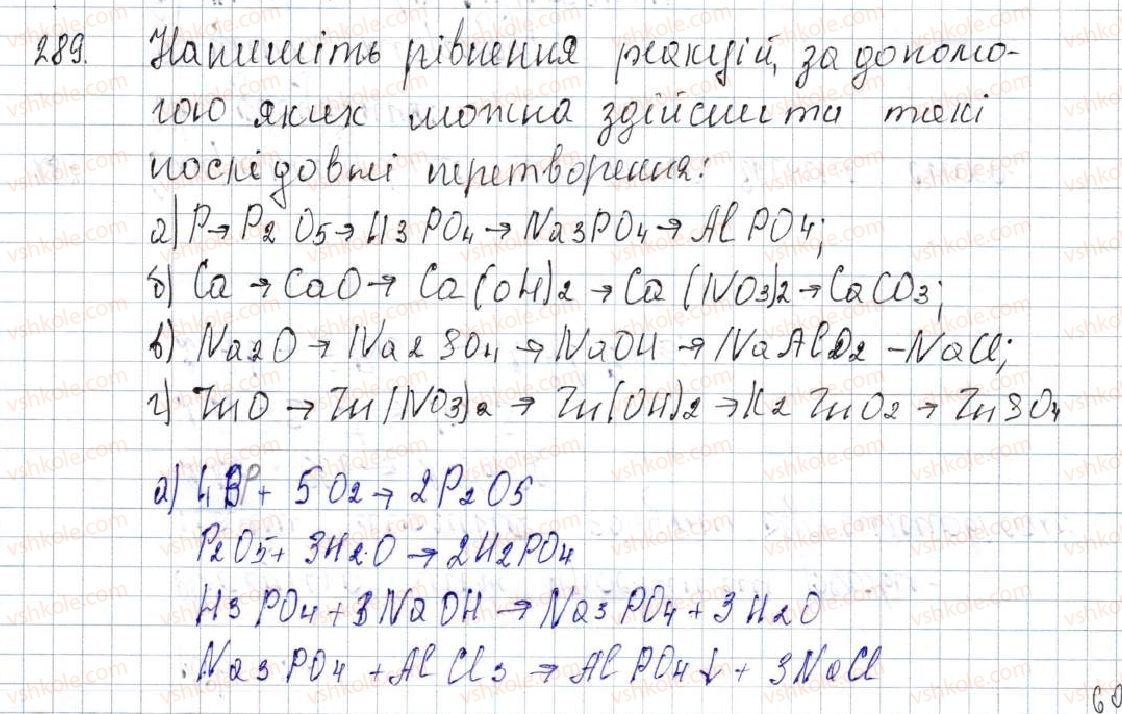 289. Напишіть рівняння реакцій, за допомо-
гою яких можна здійснити такі
послідовні перетворення:
а) P → P2O5 → H3PO4 → Na3PO4 → AlPO4;
б) Ca → CaO → Ca(OH)2 → Ca(NO3)2 → CaCO3;
в) Na2O → Na2SO4 → NaOH → NaAlO2 – NaCl;
г) ZnO → Zn(NO3)2 → Zn(OH)2 → K2ZnO2 → ZnSO4
а) 4P + 5O2 → 2P2O5
P2O5 + 3H2O → 2H2PO4
H3PO4 + 3NaOH → Na3PO4 + 3H2O
Na3PO4 + AlCl3 → AlPO4↓ + 3NaCl